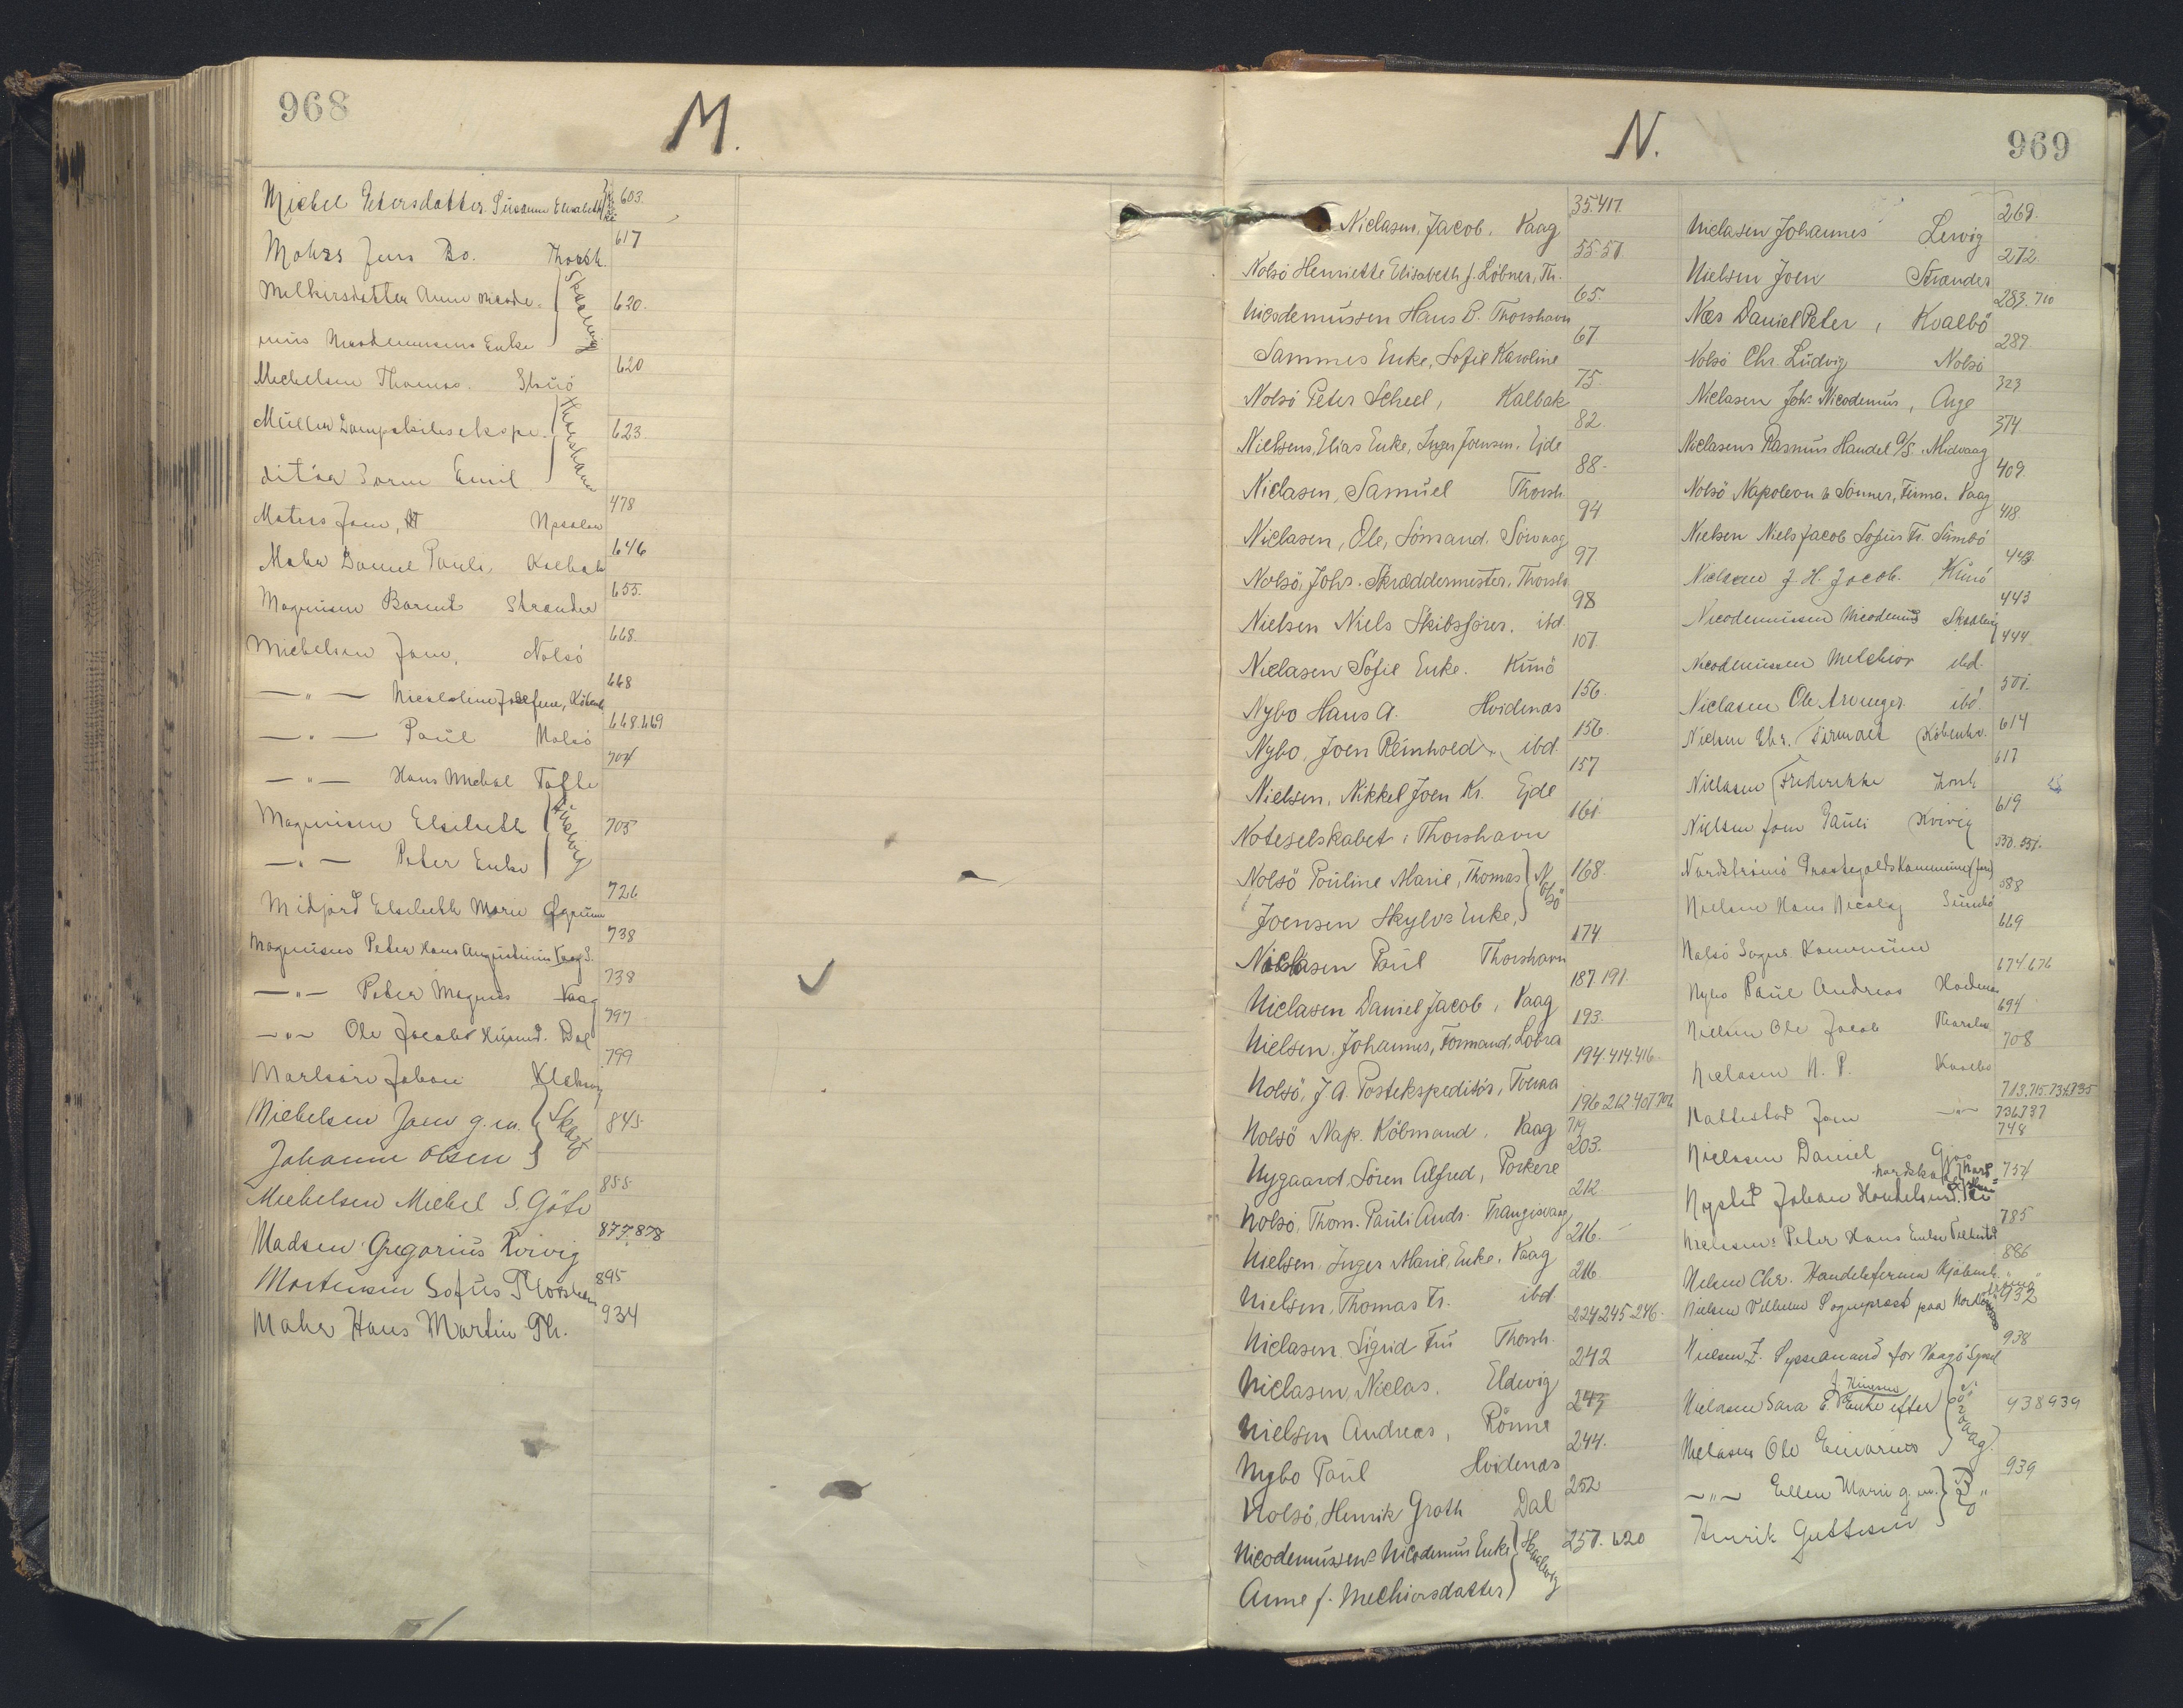 968
M.
Michel Petersdatter Susanne Elisabeth 603.
Mohrs Jens Bo. Thorsh. 617
Melkiorsdatter Anne Nicode- Skaaling 620.
mus Nicodemusens Enke
Michelsen Thomas. Skuö 620
Müller Dampskibsekspe- Thorshavn 623.
ditör Sören Emil
Maters Joen, Npsalen 478
Mohr Daniel Pauli, Kalbak 646
Magnusen Barent Strander 655.
Michelsen Joen, Nolsö 668.
—"— Nicoline Josefine, Köbenh. 668
—"— Poul Nolsö 668.669
—"— Hans Michal Tofte 704
Magnusen Elsebeth Husevig 705
—"— Peter Enke
Midjord Elsebeth Marie Ögrunn 726
Magnusens Peter Hans Augustinus Vaag S. 738
—"— Peter Magnus Vaag 738
—"— Ole Jacob Husmd. Dal 797
Marlsöre Johan Klaksvig 799
Michelsen Joen g. m. Skaaf 845.
Johanne Olsen
Michelsen Mickel S. Göte 858.
Madsen Gregorius Kvivig 877.878
Mortensen Sofus Thorshavn 895
Mohr Hans Martin Th. 934
N.
969
Niclasen, Jacob, Vaag 35.417.
Nolsö Henriette Elisabeth f. Löbner, Th. 55.57.
Nicodemussen Hans D. Thorshavn 65.
Sammes Enke, Sofie Karoline 67
Nolsö Peter Scheel, Kalbak 75.
Nielsens, Elias Enke, Inger Joensen, Ejde 82.
Niclasen, Samuel Thorsh. 88.
Niclasen, Ole, Sömand, Sörvaag 94
Nolsö, Johs. Skræddermester, Thorsh. 97
Nielsen Niels Skibsförer, ibd. 98
Niclasen Sofie Enke. Kunö 107.
Nybo Hans A. Hvidenæs 156.
Nybo, Joen Reinhold, ibd. 156.
Nielsen, Nikkel Joen Kr. Ejde 157
Noteselskabet i Thorshavn 161.
Nolsö Pouline Marie, Thomas Nolsö 168.
Joensen Skylvs Enke,
Niclasen Poul Thorshavn 174
Niclasen Daniel Jacob, Vaag 187.191.
Nielsen, Johannes, Formand, Lobra 193.
Nolsö, J. A. Postekspeditör, Tveraa 194.414.416.
Nolsö Nap. Köbmand, Vaag 196.212.407.706 719
Nygaard, Sören Alfred, Porkere 203.
Nolsö, Thom. Pauli Andr. Trangisvaag 212.
Nielsen, Inger Marie, Enke, Vaag 216.
Nielsen, Thomas Fr. ibd. 216
Niclasen, Sigrid Fru Thorsh. 224.245.246.
Niclasen, Niclas, Eldevig 242
Nielsen Andreas, Rönne 243
Nybo Poul Hvidenæs 244.
Nolsö, Henrik Groth Dal 252
Nicodemussens Nicodemus Enke Skaalevig 257. 620
Anne f. Melchiorsdatter
Niclasen Johannes Lervig 269.
Nielsen Joen Strander 272
Næs Daniel Peter, Kvalbö 283.710
Nolsö Chr. Ludvig Nolsö 289.
Niclasen Joh. Nicodemus, Arge 323
Niclasens Rasmus Handel A/S. Midvaag 374
Nolsö Napoleon & Sönner, Firma, Vaag 409.
Nielsen Niels Jacob Sofus Fr. Sumbö 418.
Nielsen J. H. Jacob. Kunö 443.
Nicodemussen Nicodemus Skaalevig 443
Nicodemussen Melchior ibd. 444.
Niclasen Ole Arvinger ibd. 501.
Nielsen Chr. Firmaet Köbenhv. 614
Niclasen Frederikke Thorsh. 617
Nielsen Joen Pauli Kvivig 619
Nordströmö Præstegjelds Kommune 550.551.
Nielsen Hans Nicolaj Sumbö 588
Nolsö Sogns Kommune 669
Nybo Poul Andreas Hvidenæs 674.676
Nielsen Ole Jacob Thorshv. 694
Niclasen N. P. Kvalbö 708
Nattestad Joen —"— 713.715.734.735 736.737
Niclasen Daniel Gjov 748
Nysted Johan Handelsmd. 754
Niclasens Peter Hans Enke Velbestad 785
Nielsen Chr. Handelsfirma Kjöbenh. 886
Nielsen Vilhelm Sognepræst paa Nordströmö 932
Nielsen Z. Sysselmand for Vaagö Syssel 938
Niclasen Sara E. Enke efter Sörvaag 938.939
Niclasen Ole Einarius
—"— Ellen Marie g. m. Bö 939
Henrik Guttesen "